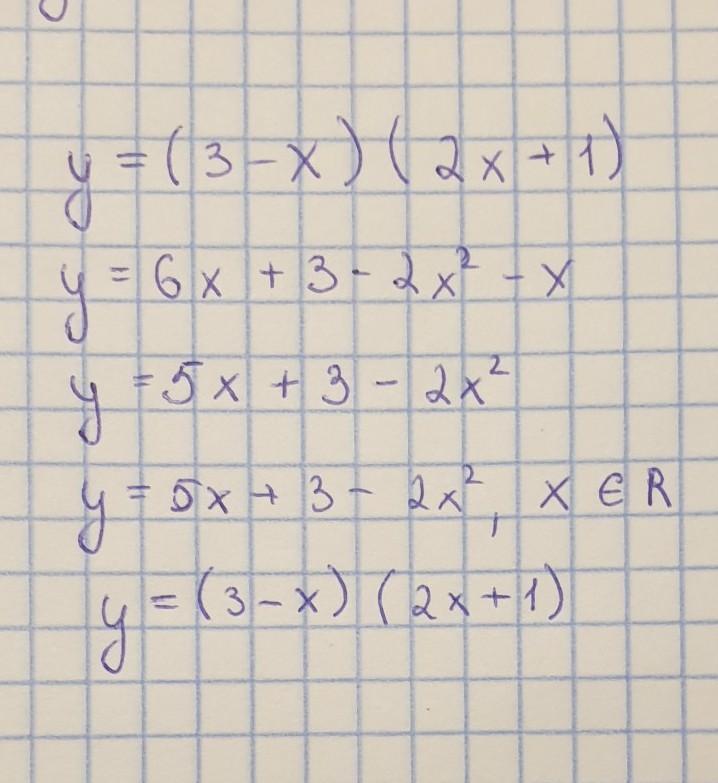 y = (3 - x)(2x + 1)
y = 6x + 3 - 2x² - x
y = 5x + 3 - 2x²
y = 5x + 3 - 2x², x ∈ R
y = (3 - x)(2x + 1)